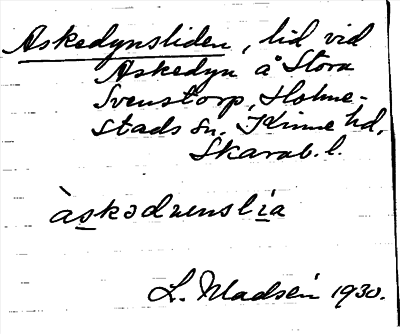 Askedynsliden, lid vid
Askedyn å Stora
Svenstorp, Holme-
stads sn. Kinne hd,
Skarab. l.
àskədzenslia
L. Madsén 1930.